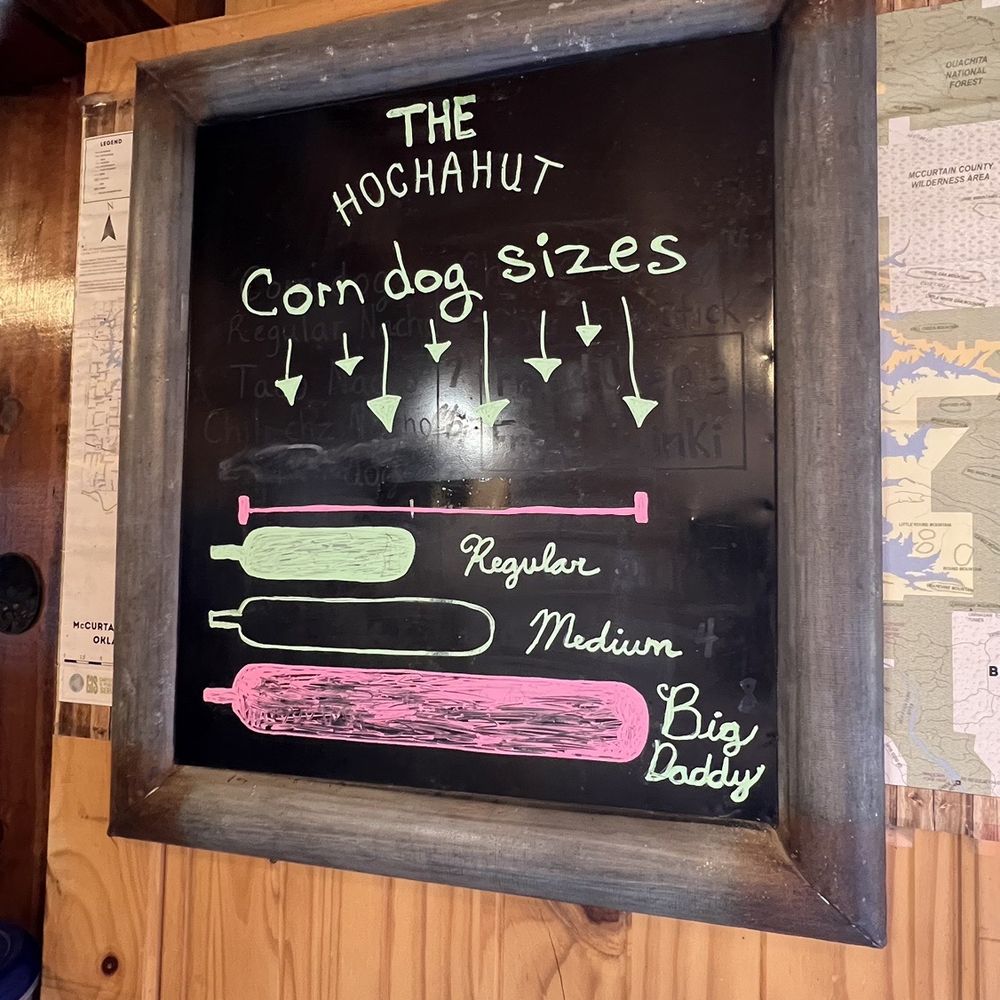 THE
HOCHAHUT
Corn dog sizes
Regular
Medium
Big
Daddy
LEGEND
N
OUACHITA
NATIONAL
FOREST
MCCURTAIN COUNTY
WILDERNESS AREA
LITTLE ROUND MOUNTAIN
McCURTA
OKLA
GIS
B